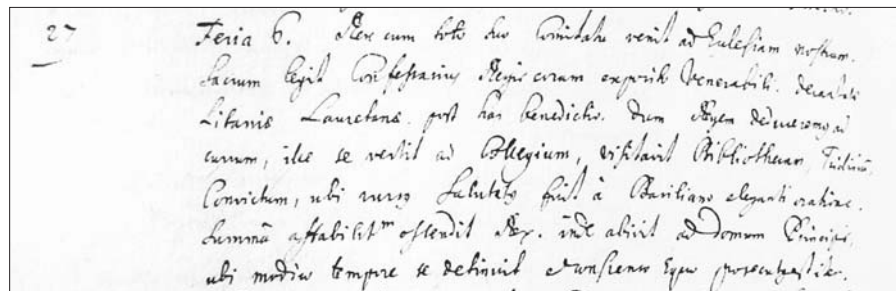 27 Feria 6. Rex cum toto suo Comitatu venit ad Eclesiam nostram.
Sacrum legit Confessarius Regis coram exposito Venerabili. decantatae
Litaniae Lauretanae. post has benedictio. dum Regem deduceremus ad
currum, ille se vertit ad Collegium, visitavit Bibliothecam,
Convictum, ubi rursus Salutatus fuit à Basiliano eleganti oratione.
Summā affabilitm ostendit Rex. inde abiit ad domum Principis,
ubi modico tempore se detinuit